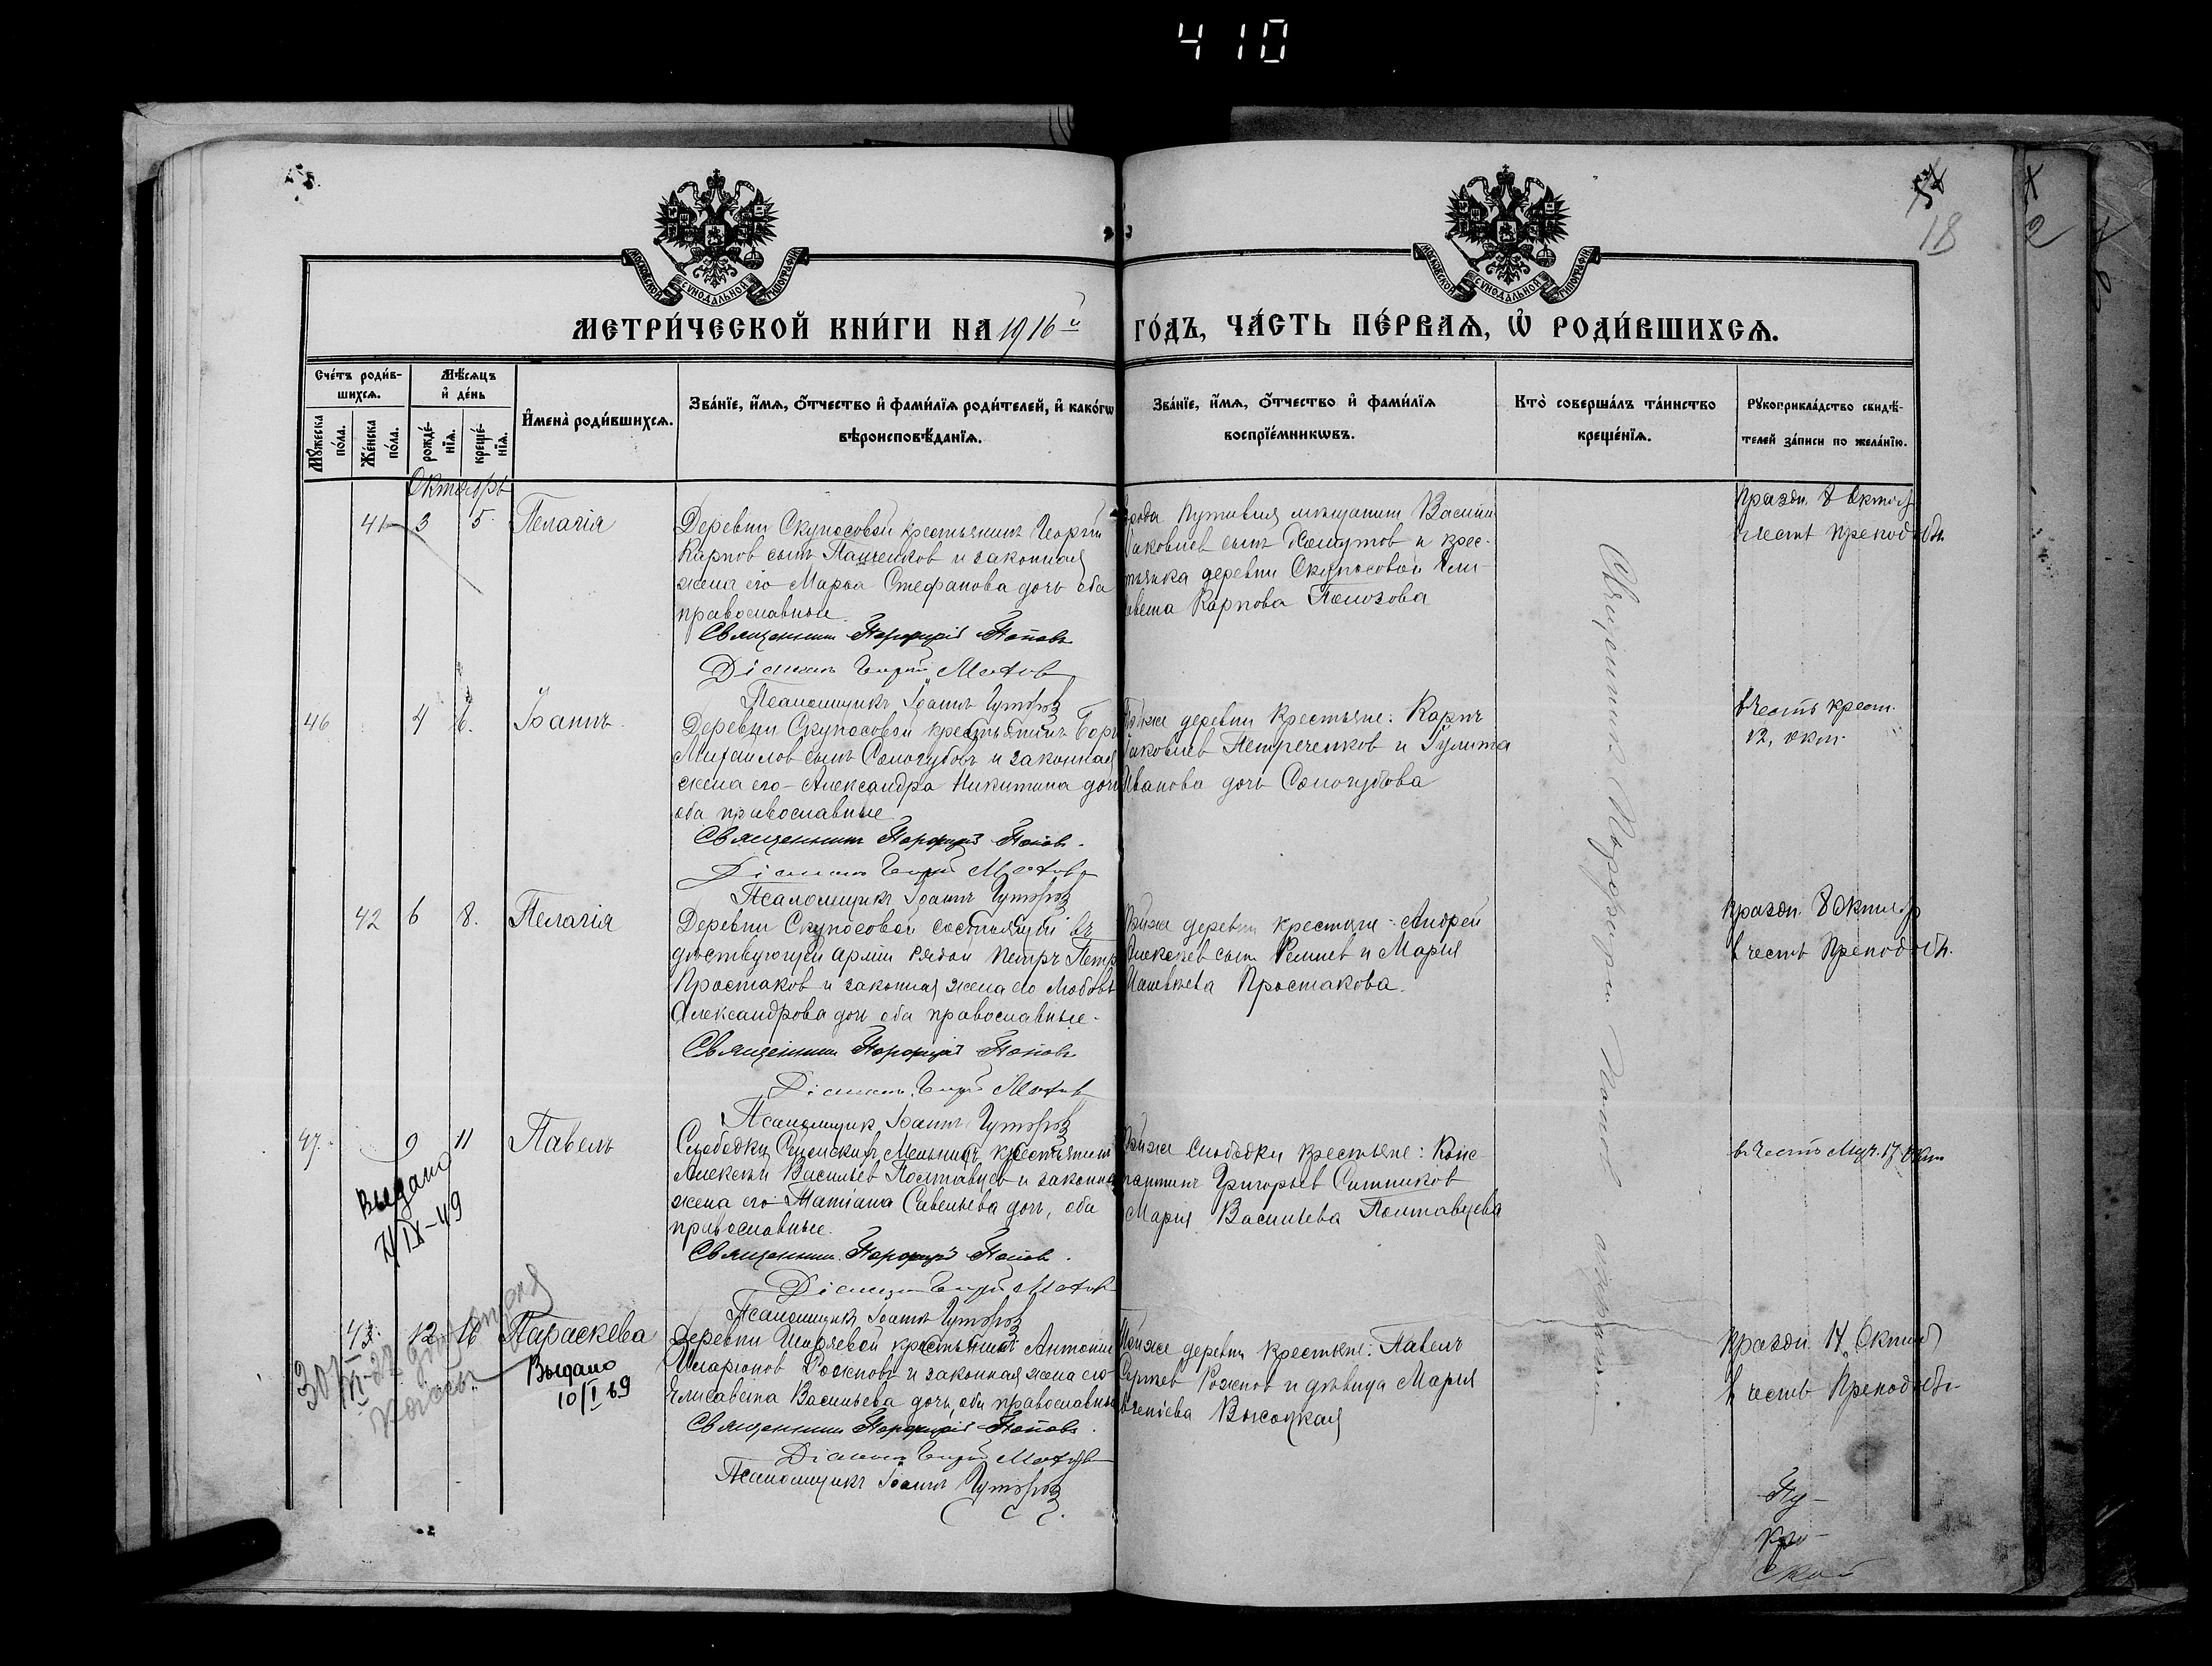 410
18
МОСКОВСКОЙ СѴНОДАЛЬНОЙ ТИПОГРАФІИ
МОСКОВСКОЙ СѴНОДАЛЬНОЙ ТИПОГРАФІИ
МЕТРИ́ЧЕСКОЙ КНИ́ГИ НА 1916й ГО́ДЪ, ЧА́СТЬ ПЕ́РВАѦ, Ѽ РОДИ́ВШИХСѦ.
Сче́тъ роди́в-
шихсѧ.
Мꙋ́жеска по́ла.
Же́нска по́ла.
Мѣ́сѧцъ
и҆ де́нь
рожде́-нїѧ.
креще́-нїѧ.
И҆мена̀ роди́вшихсѧ.
Зва́нїе, и҆́мѧ, ѻ҆́тчество и҆ фами́лїѧ роди́телей, и҆ како́гѡ
вѣроисповѣ́данїѧ.
Зва́нїе, и҆́мѧ, ѻ҆́тчество и҆ фами́лїѧ
воспрїе́мникѡвъ.
Кто̀ соверша́лъ та́инство
креще́нїѧ.
Рꙋкоприкла́дство свидѣ́-
телей за́писи по жела́нїю.
Октябрь
41 3 5 Пелагія
Деревни Скупосовой крестьянинъ Георгій
Карпов сынъ Панченков и законная
жена его Марья Стефанова дочь оба
православные
Священник Порфирій Попов
Діакон Георгій
Псаломщикъ Іоаннъ
города Путивля мещанин Василий
Яковлев сынъ Хомутов и крес-
тьянка деревни Скупосовой Ели-
завета Карпова
Празд. 8 Октяб
в честь преподобн.
46 4 6. Іоаннъ
Деревни Скупосовой крестьянинъ
Михаилов сынъ Сологубовъ и законная
жена его Александра Никитина дочь
оба православные
Священник Порфирій Попов.
Діакон Георгій
Псаломщикъ Іоаннъ
Той же деревни крестьяне: Карпъ
Яковлев Петреченков и Іулита
Иванова дочь Сологубова
в честь крест.
12, окт.
42 6 8. Пелагія
Деревни Скупосовой состоящій въ
действующей арміи рядой Петръ Петр
Простаков и законная жена его Любовь
Александрова дочь оба православные.
Священник Порфирій Попов
Діакон Георгій
Псаломщик Іоаннъ
Той же деревни крестьяне: Андрей
Алексеев сын и Марія
Простакова.
празд. 8 Октябр
в честь Преподобн.
47. 9 11 Павелъ
Слободки крестьянин
Алексей Васильев Полтавцев и законная
жена его Татіана Савельева дочь, оба
православные.
Священник Порфирій Попов.
Діакон Георгій
Псаломщикъ Іоаннъ
Той же Слободки крестьяне: Конс-
тантин Григорьев Ситников
Марія Васильева Полтавцева
в честь Муч. 17 Окт
Выдано
7/IX-49
43. 12 16 Параскева
Деревни Ширяевой крестьянин Антоній
Иларіонов Рожнов и законная жена его
Елисавета Васильева дочь, оба православные
Священник Порфирій Попов.
Діакон Георгій
Псаломщикъ Іоаннъ
Той же деревни крестьяне: Павелъ
Сергеев Рожнов и девица Марія
Высоцкая
празд. 14 Октяб
в честь Преподобн.
Выдано
10/I 69
Священник Порфирій Попов
Пу-